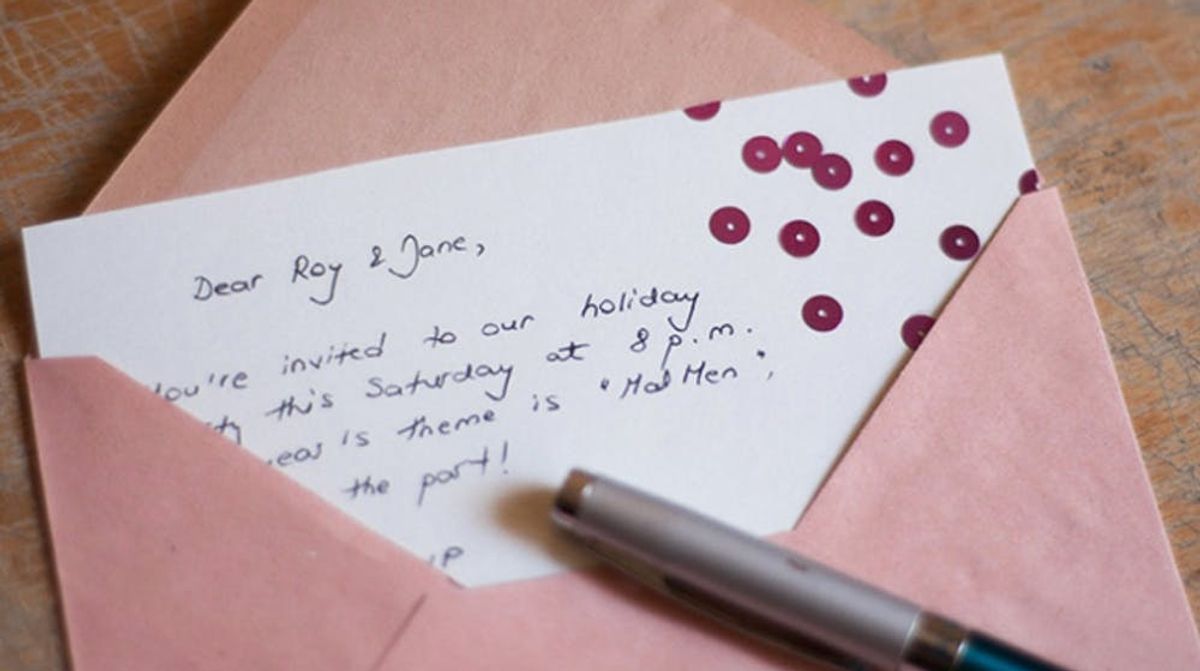 Dear Roy & Jane,
You're invited to our holiday
this Saturday at 8 p.m.
is theme is "Mad Men",
the part!